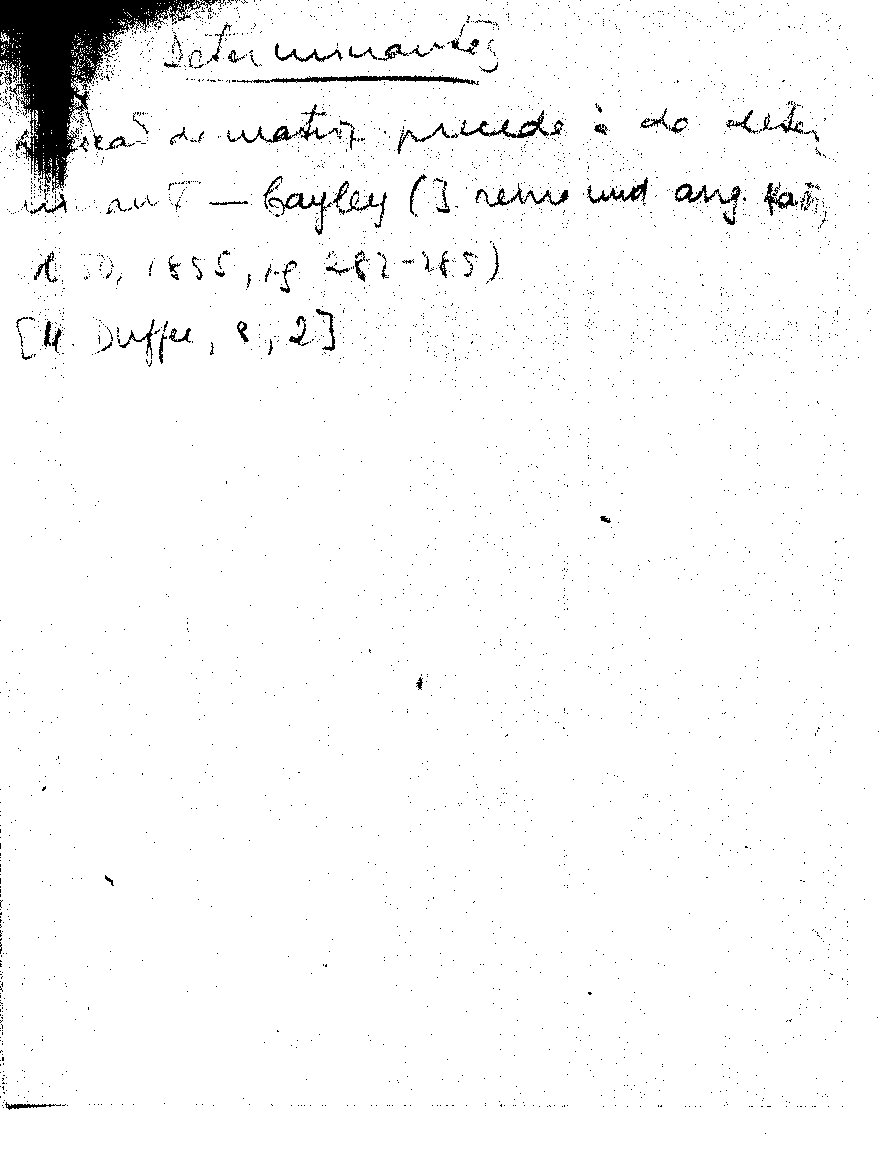 Determinantes
de matriz precede à do deter
minant — Cayley (J reine und ang. Math,
50, 1855, pg 282-285)
[M. Duffee, 8, 2]